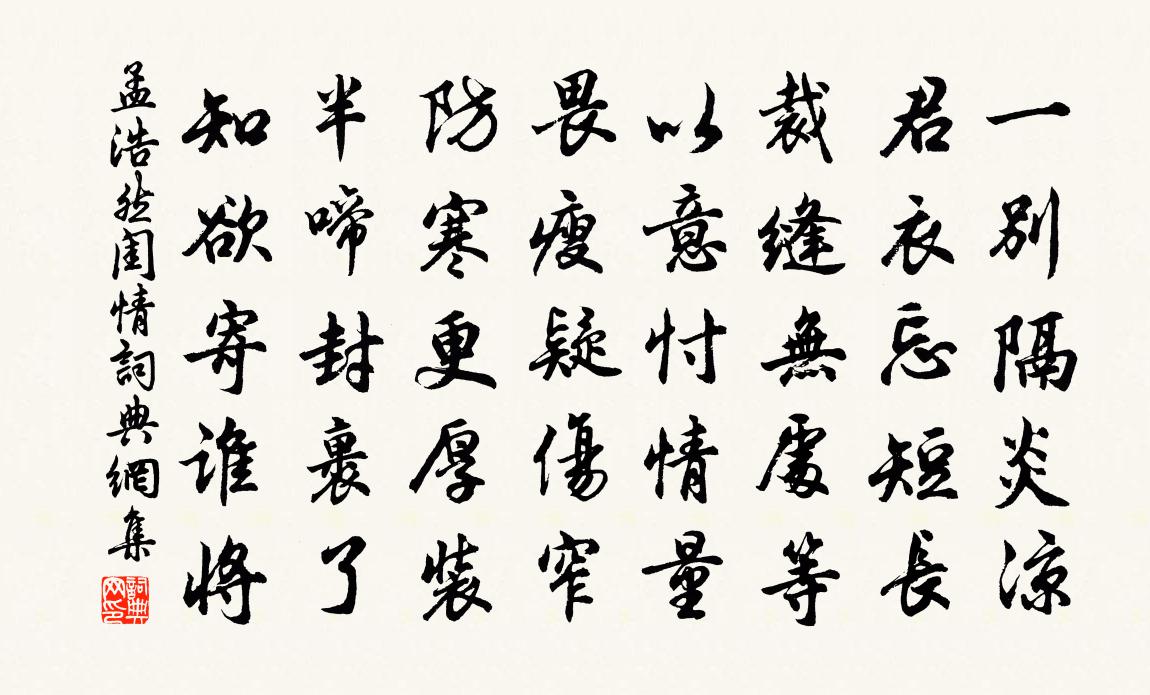 一別隔炎涼
君衣忘短長
裁縫無處等
以意忖情量
畏瘦疑傷窄
防寒更厚裝
半啼封裹了
知欲寄誰將
孟浩然閨情詞典網集
詞典網印